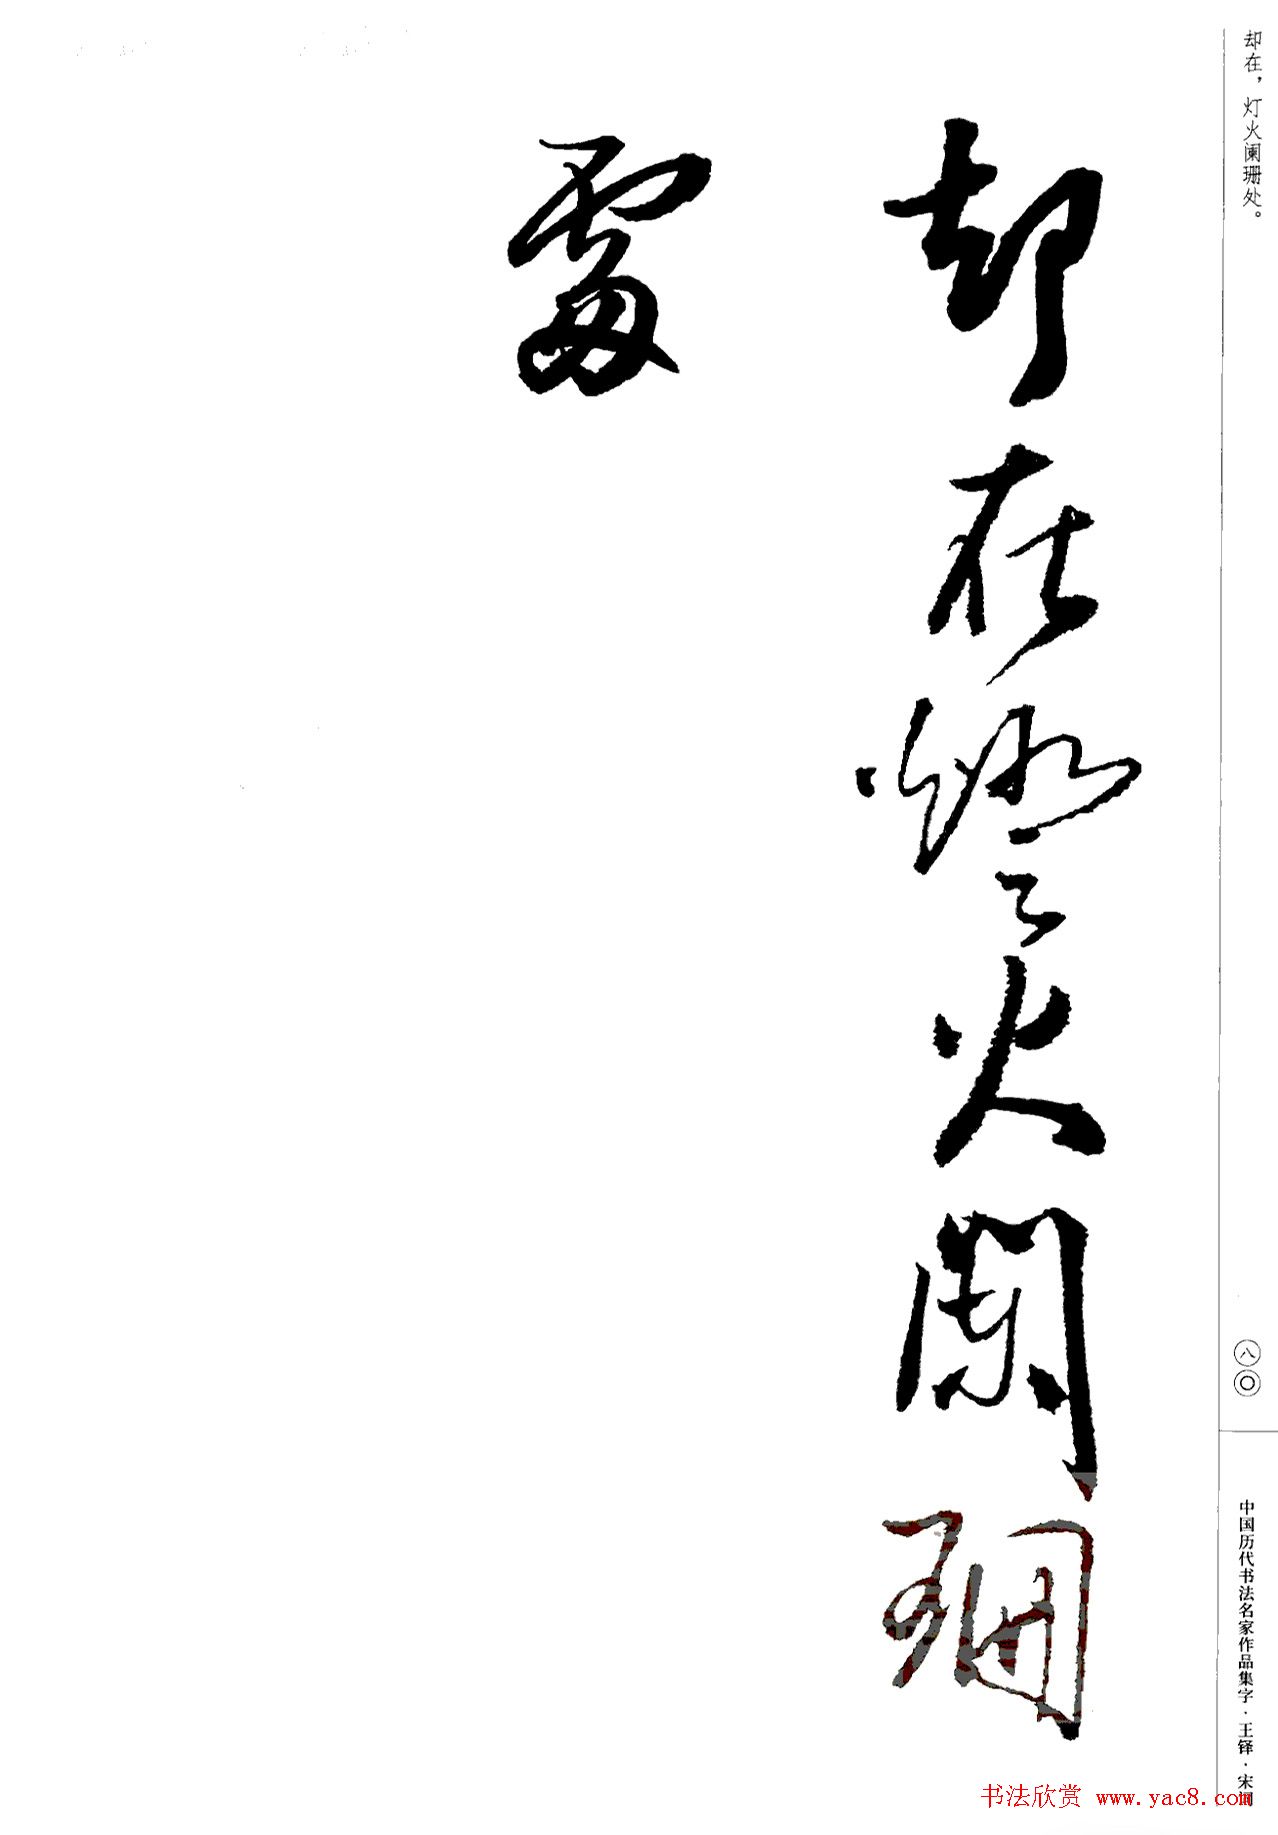 却在，灯火阑珊处。
却在燈火闌珊
處
八〇
中国历代书法名家作品集字·王铎·宋词
书法欣赏 www.yac8.com